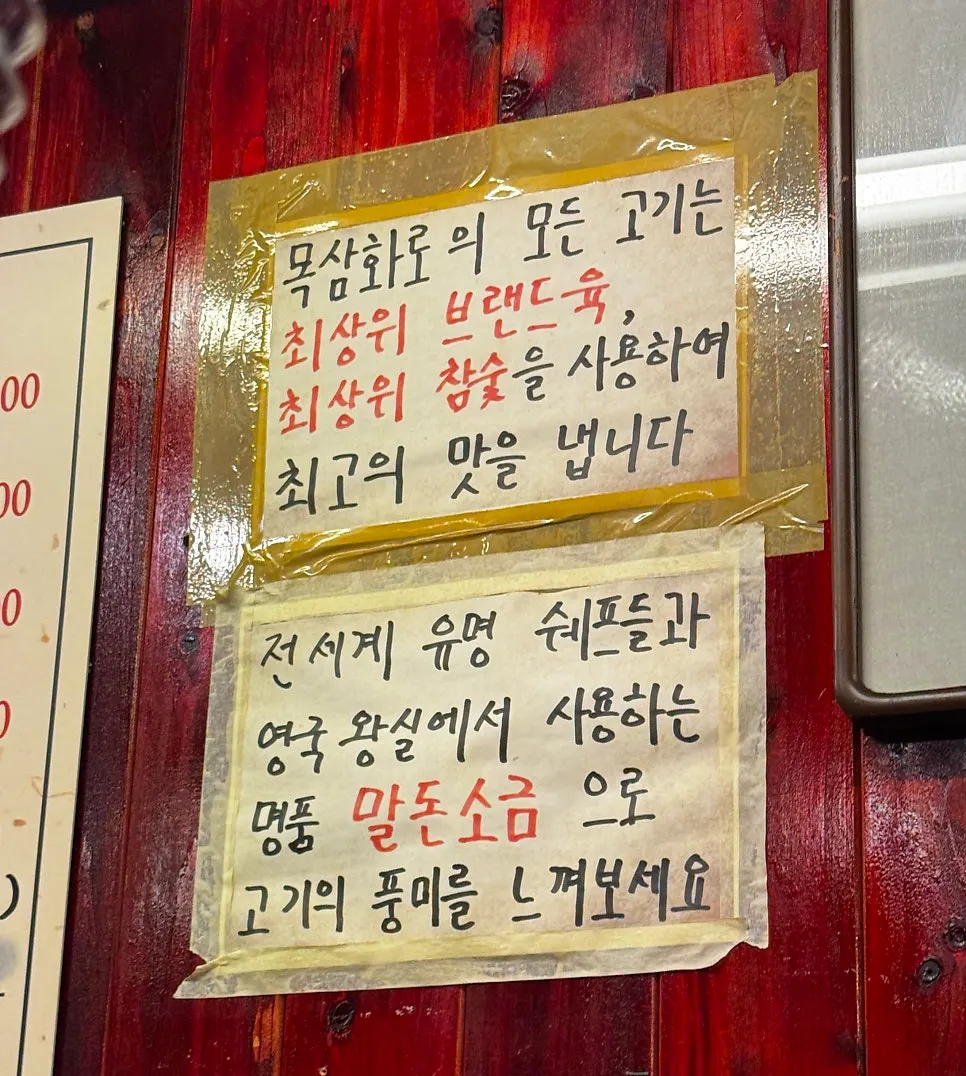 목삼화로의 모든 고기는
최상위 브랜드육,
최상위 참숯을 사용하여
최고의 맛을 냅니다
전세계 유명 쉐프들과
영국 왕실에서 사용하는
명품 말돈소금 으로
고기의 풍미를 느껴보세요
00
00
0
0
)